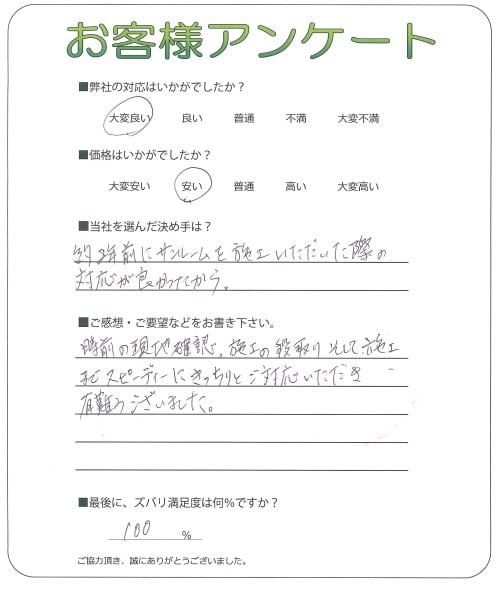 お客様アンケート
■弊社の対応はいかがでしたか？
大変良い 良い 普通 不満 大変不満
■価格はいかがでしたか？
大変安い 安い 普通 高い 大変高い
■当社を選んだ決め手は？
約2年前にサンルームを施工いただいた際の
対応が良かったから。
■ご感想・ご要望などをお書き下さい。
事前の現地確認、施工の段取りそして施工
までスピーディーにきっちりとご対応いただき
有難うございました。
■最後に、ズバリ満足度は何％ですか？
100 %
ご協力頂き、誠にありがとうございました。